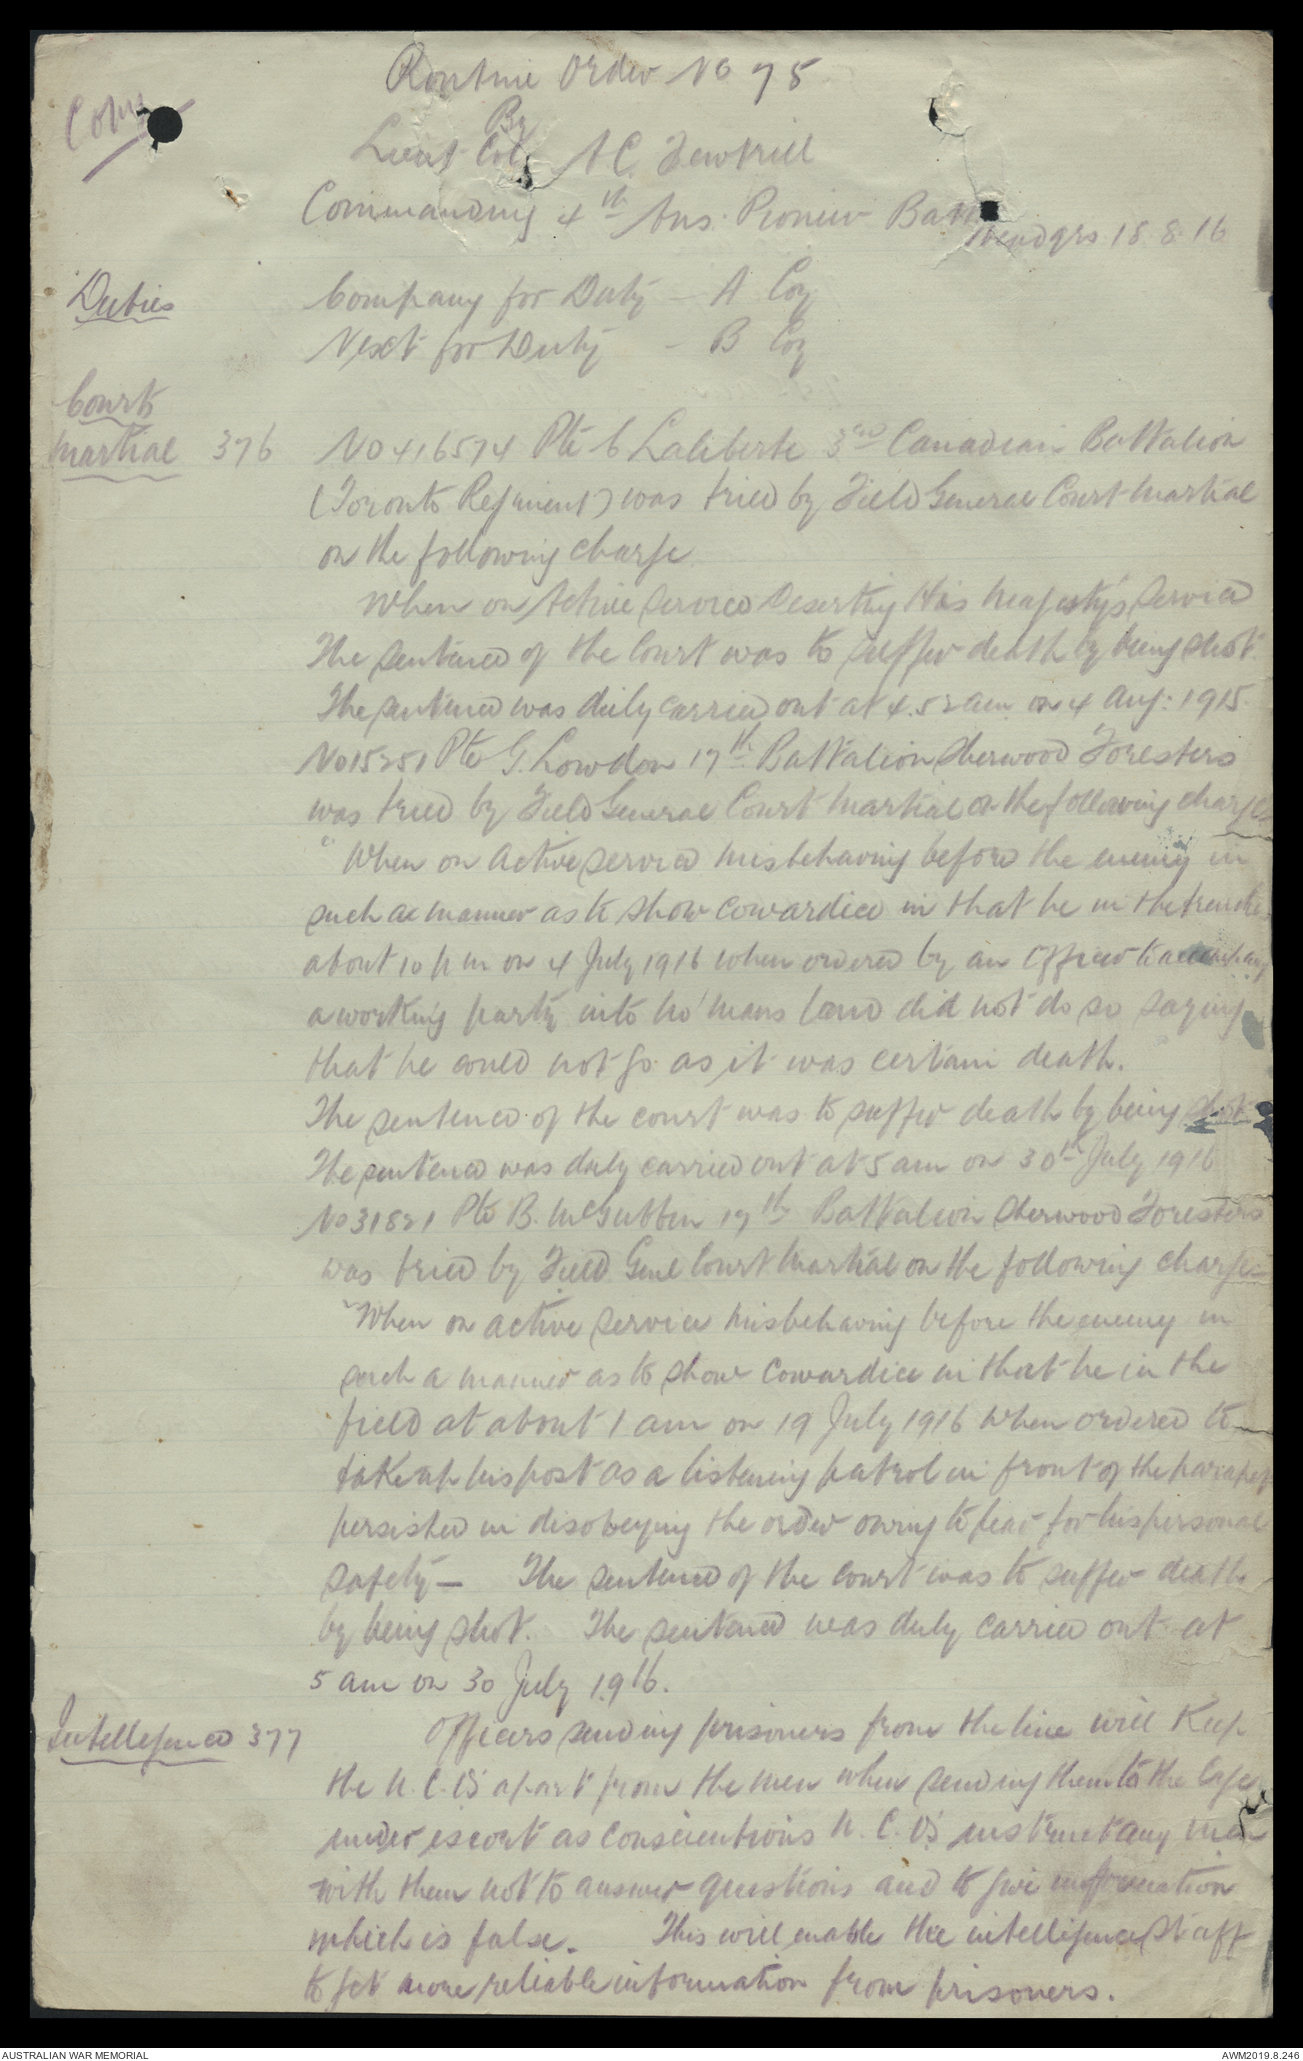 Copy
Routine Order No 75
By
Lieut Col A C Fewtrell
Commanding 4th Aus. Pioneer Battn
Headqrs 18.8.16
Duties Company for Duty - A Coy
Next for Duty - B Coy
Courts
Martial 376 No 416574 Pte C Laliberte 3rd Canadian Battalion
(Toronto Regiment) was tried by Field General Court Martial
on the following charge
When on Active Service Deserting His Majesty's Service
The sentence of the Court was to suffer death by being shot.
The sentence was duly carried out at 4.52 am on 4 Aug: 1915.
No 15251 Pte G. Lowdon 17th Battalion Sherwood Foresters
was tried by Field General Court Martial on the following charge
"When on active service misbehaving before the enemy in
such a manner as to show cowardice in that he in the trenches
about 10 p m on 4 July 1916 when ordered by an Officer to accompany
a working party into no mans land did not do so saying
that he could not go as it was certain death.
The sentence of the court was to suffer death by being shot.
The sentence was duly carried out at 5 am on 30th July 1916
No 31821 Pte B. McGubbin 17th Battalion Sherwood Foresters
was tried by Field Genl Court Martial on the following charge
"When on active service misbehaving before the enemy in
such a manner as to show cowardice in that he in the
field at about 1 am on 19 July 1916 when ordered to
take up his post as a listening patrol in front of the parapet
persisted in disobeying the order owing to fear for his personal
safety - The sentence of the court was to suffer death
by being shot. The sentence was duly carried out at
5 am on 30 July 1916.
Intelligence 377 Officers sending prisoners from the line will keep
the N.C.O's apart from the men when sending them to the Cage
under escort as conscientious N.C.O's instruct any men
with them not to answer questions and to give information
which is false. This will enable the intelligence Staff
to get more reliable information from prisoners.
AUSTRALIAN WAR MEMORIAL
AWM2019.8.246